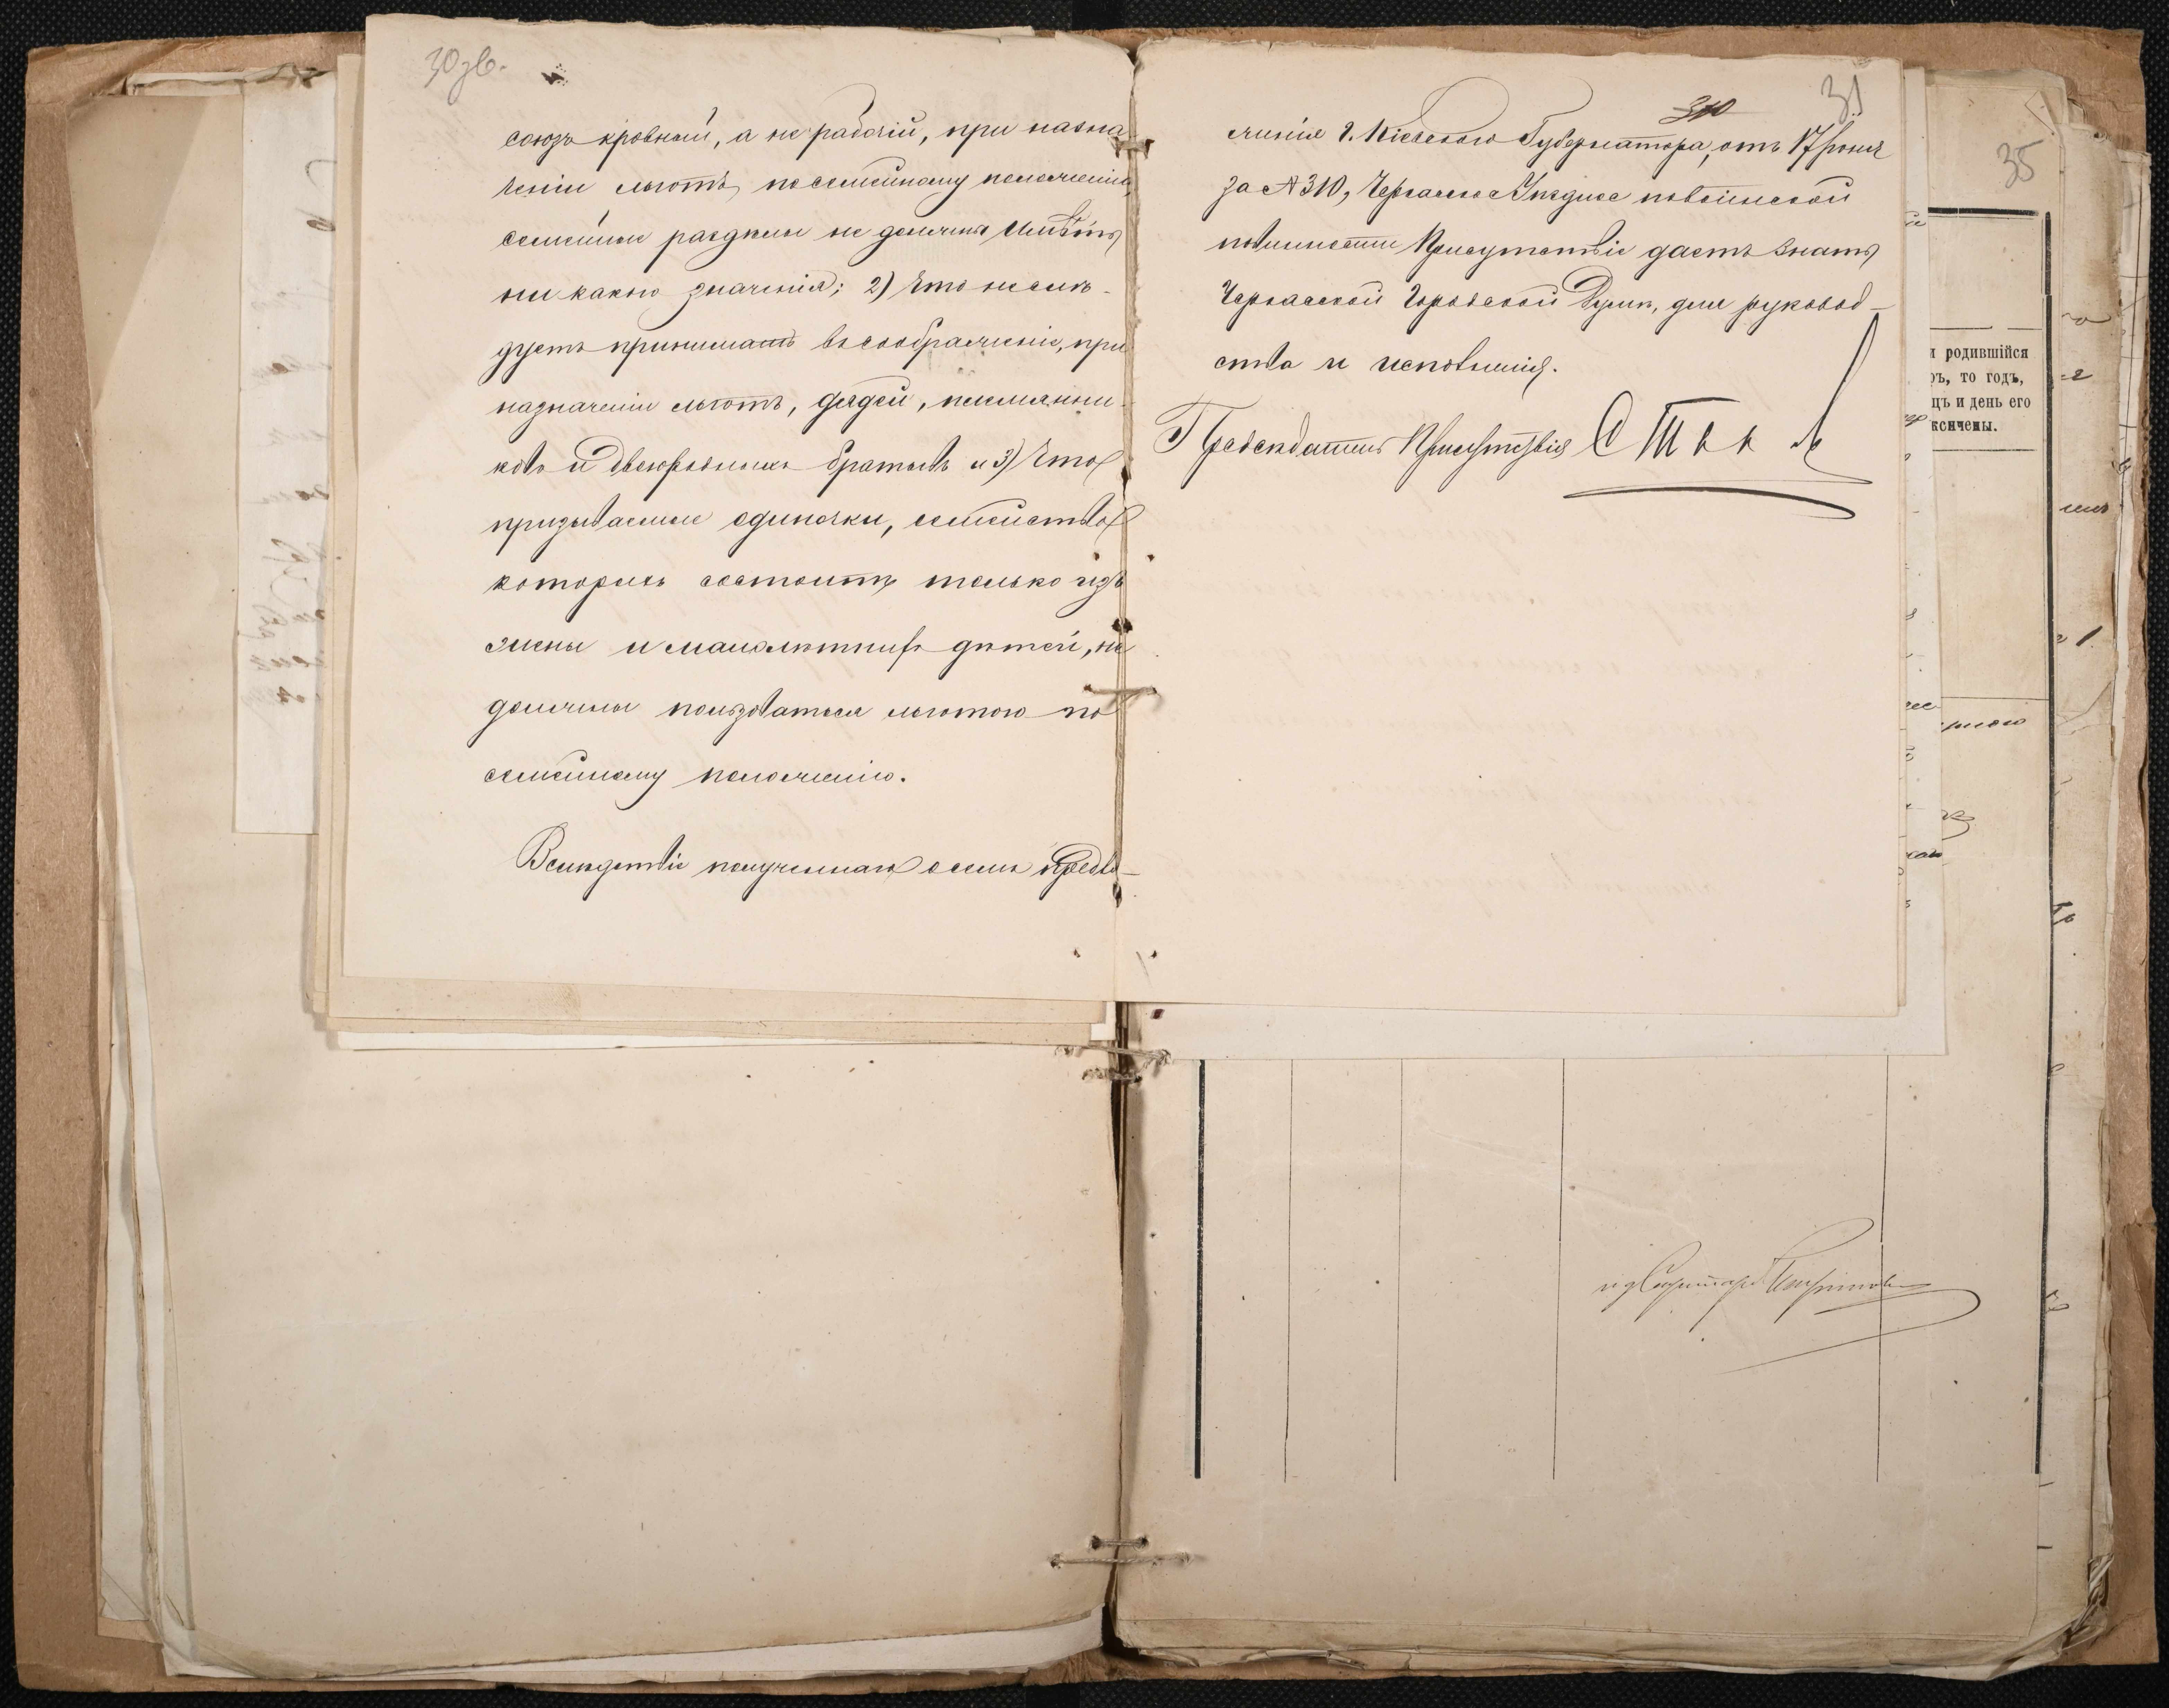 30 зв.
союзъ кровный, а не рабочій, при назна-
ченіи льготъ по семейному положенію,
семейные раздѣлы не должны имѣть
ни какого значенія; 2) что не слѣ-
дуетъ принимать въ соображеніе, при
назначеніи льготъ, дядей, племянни-
ковъ и двоюродныхъ братьевъ и 3) что
призываемые одиночки, семейство
которыхъ состоитъ только изъ
жены и малолѣтнихъ дѣтей, не
должны пользоваться льготою по
семейному положенію.
Вслѣдствіе полученнаго о семъ предло-
31
310
женія г. Кіевскаго Губернатора, отъ 17 Іюня
за № 310, Черкасское Уѣздное по воинской
повинности Присутствіе даетъ знать
Черкасской Городской Думѣ, для руковод-
ства и исполненія.
Предсѣдатель Присутствія
35
родившійся
ръ, то годъ,
цъ и день его
кончены.
ид Секретаря